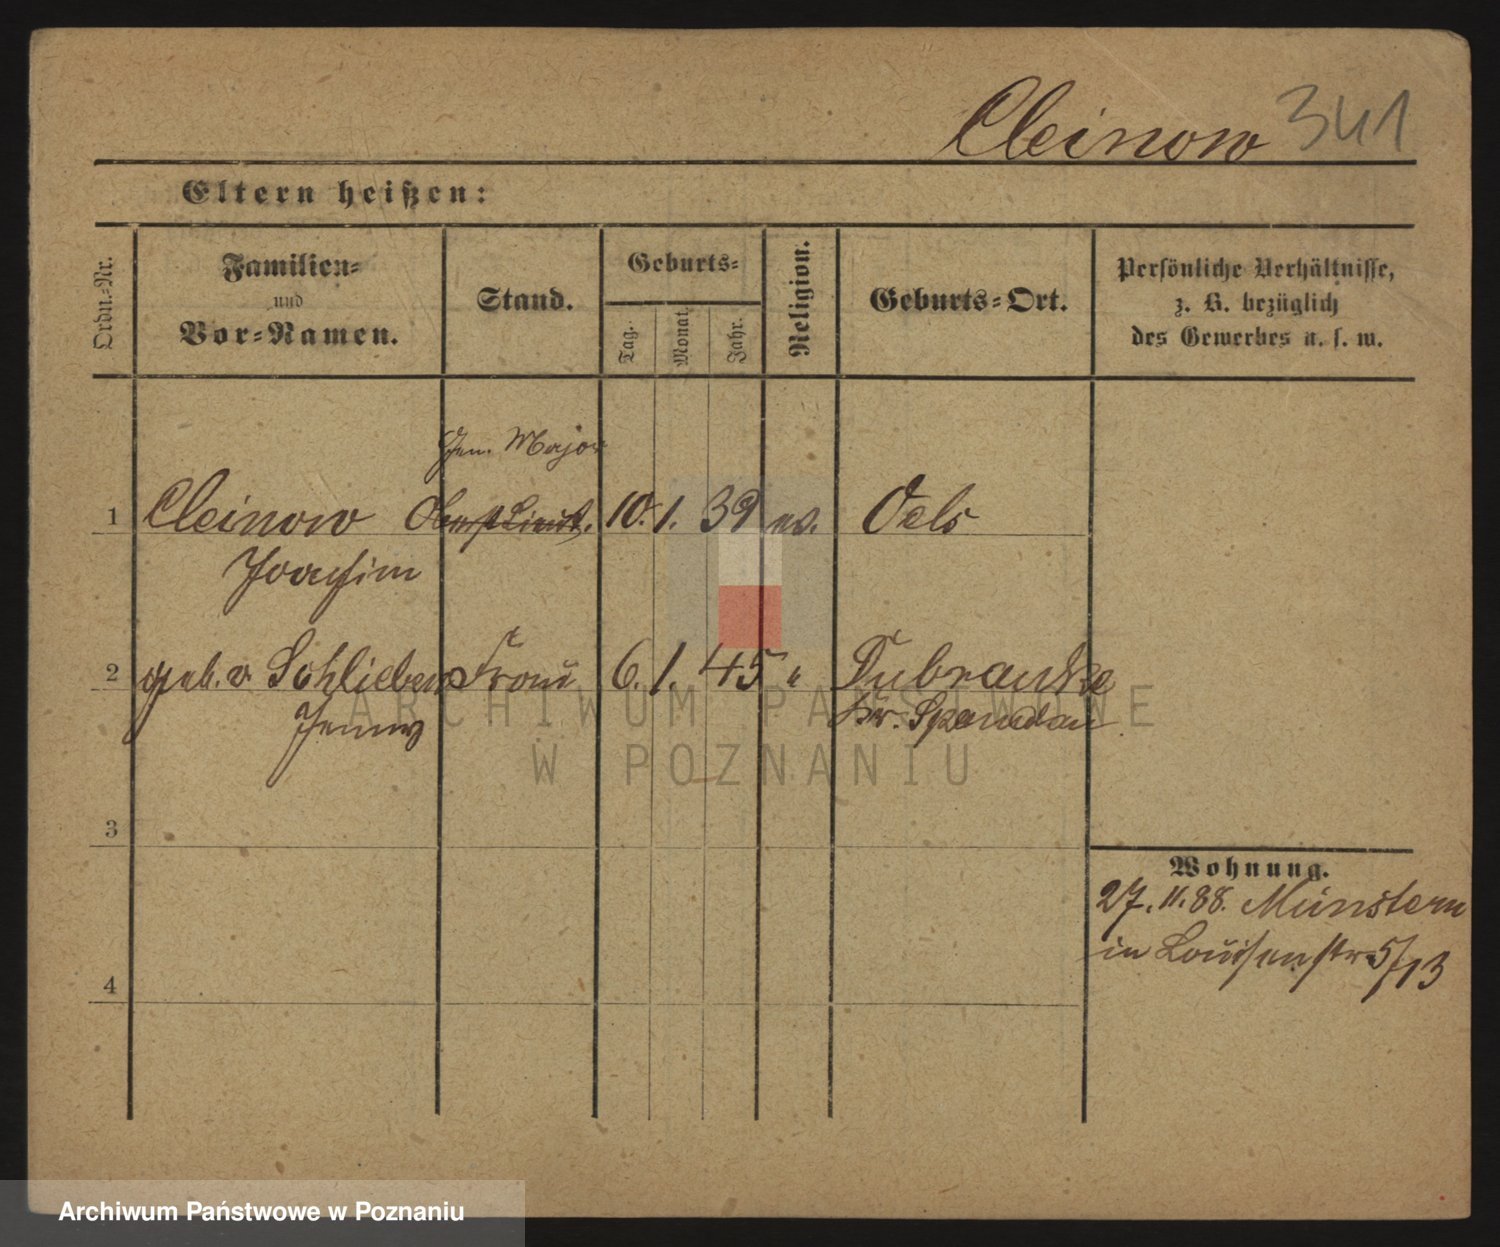 Cleinow 341
Eltern heißen:
Ordn.-Nr.
Familien-
und
Vor-Namen.
Stand.
Geburts-
Tag.
Monat.
Jahr.
Religion.
Geburts-Ort.
Persönliche Verhältnisse,
z. B. bezüglich
des Gewerbes u. s. w.
Gen. Major
1 Cleinow Oberst Lieut. 10. 1. 39 ev. Oels
Joachim
2 geb. v Schlieben Frau 6. 1. 45 "
Jenny Kr. Spandau
ARCHIWUM PAŃSTWOWE
W POZNANIU
3
Wohnung.
27. 11. 88. Münstern
in Louisenstr 5/13
4
Archiwum Państwowe w Poznaniu